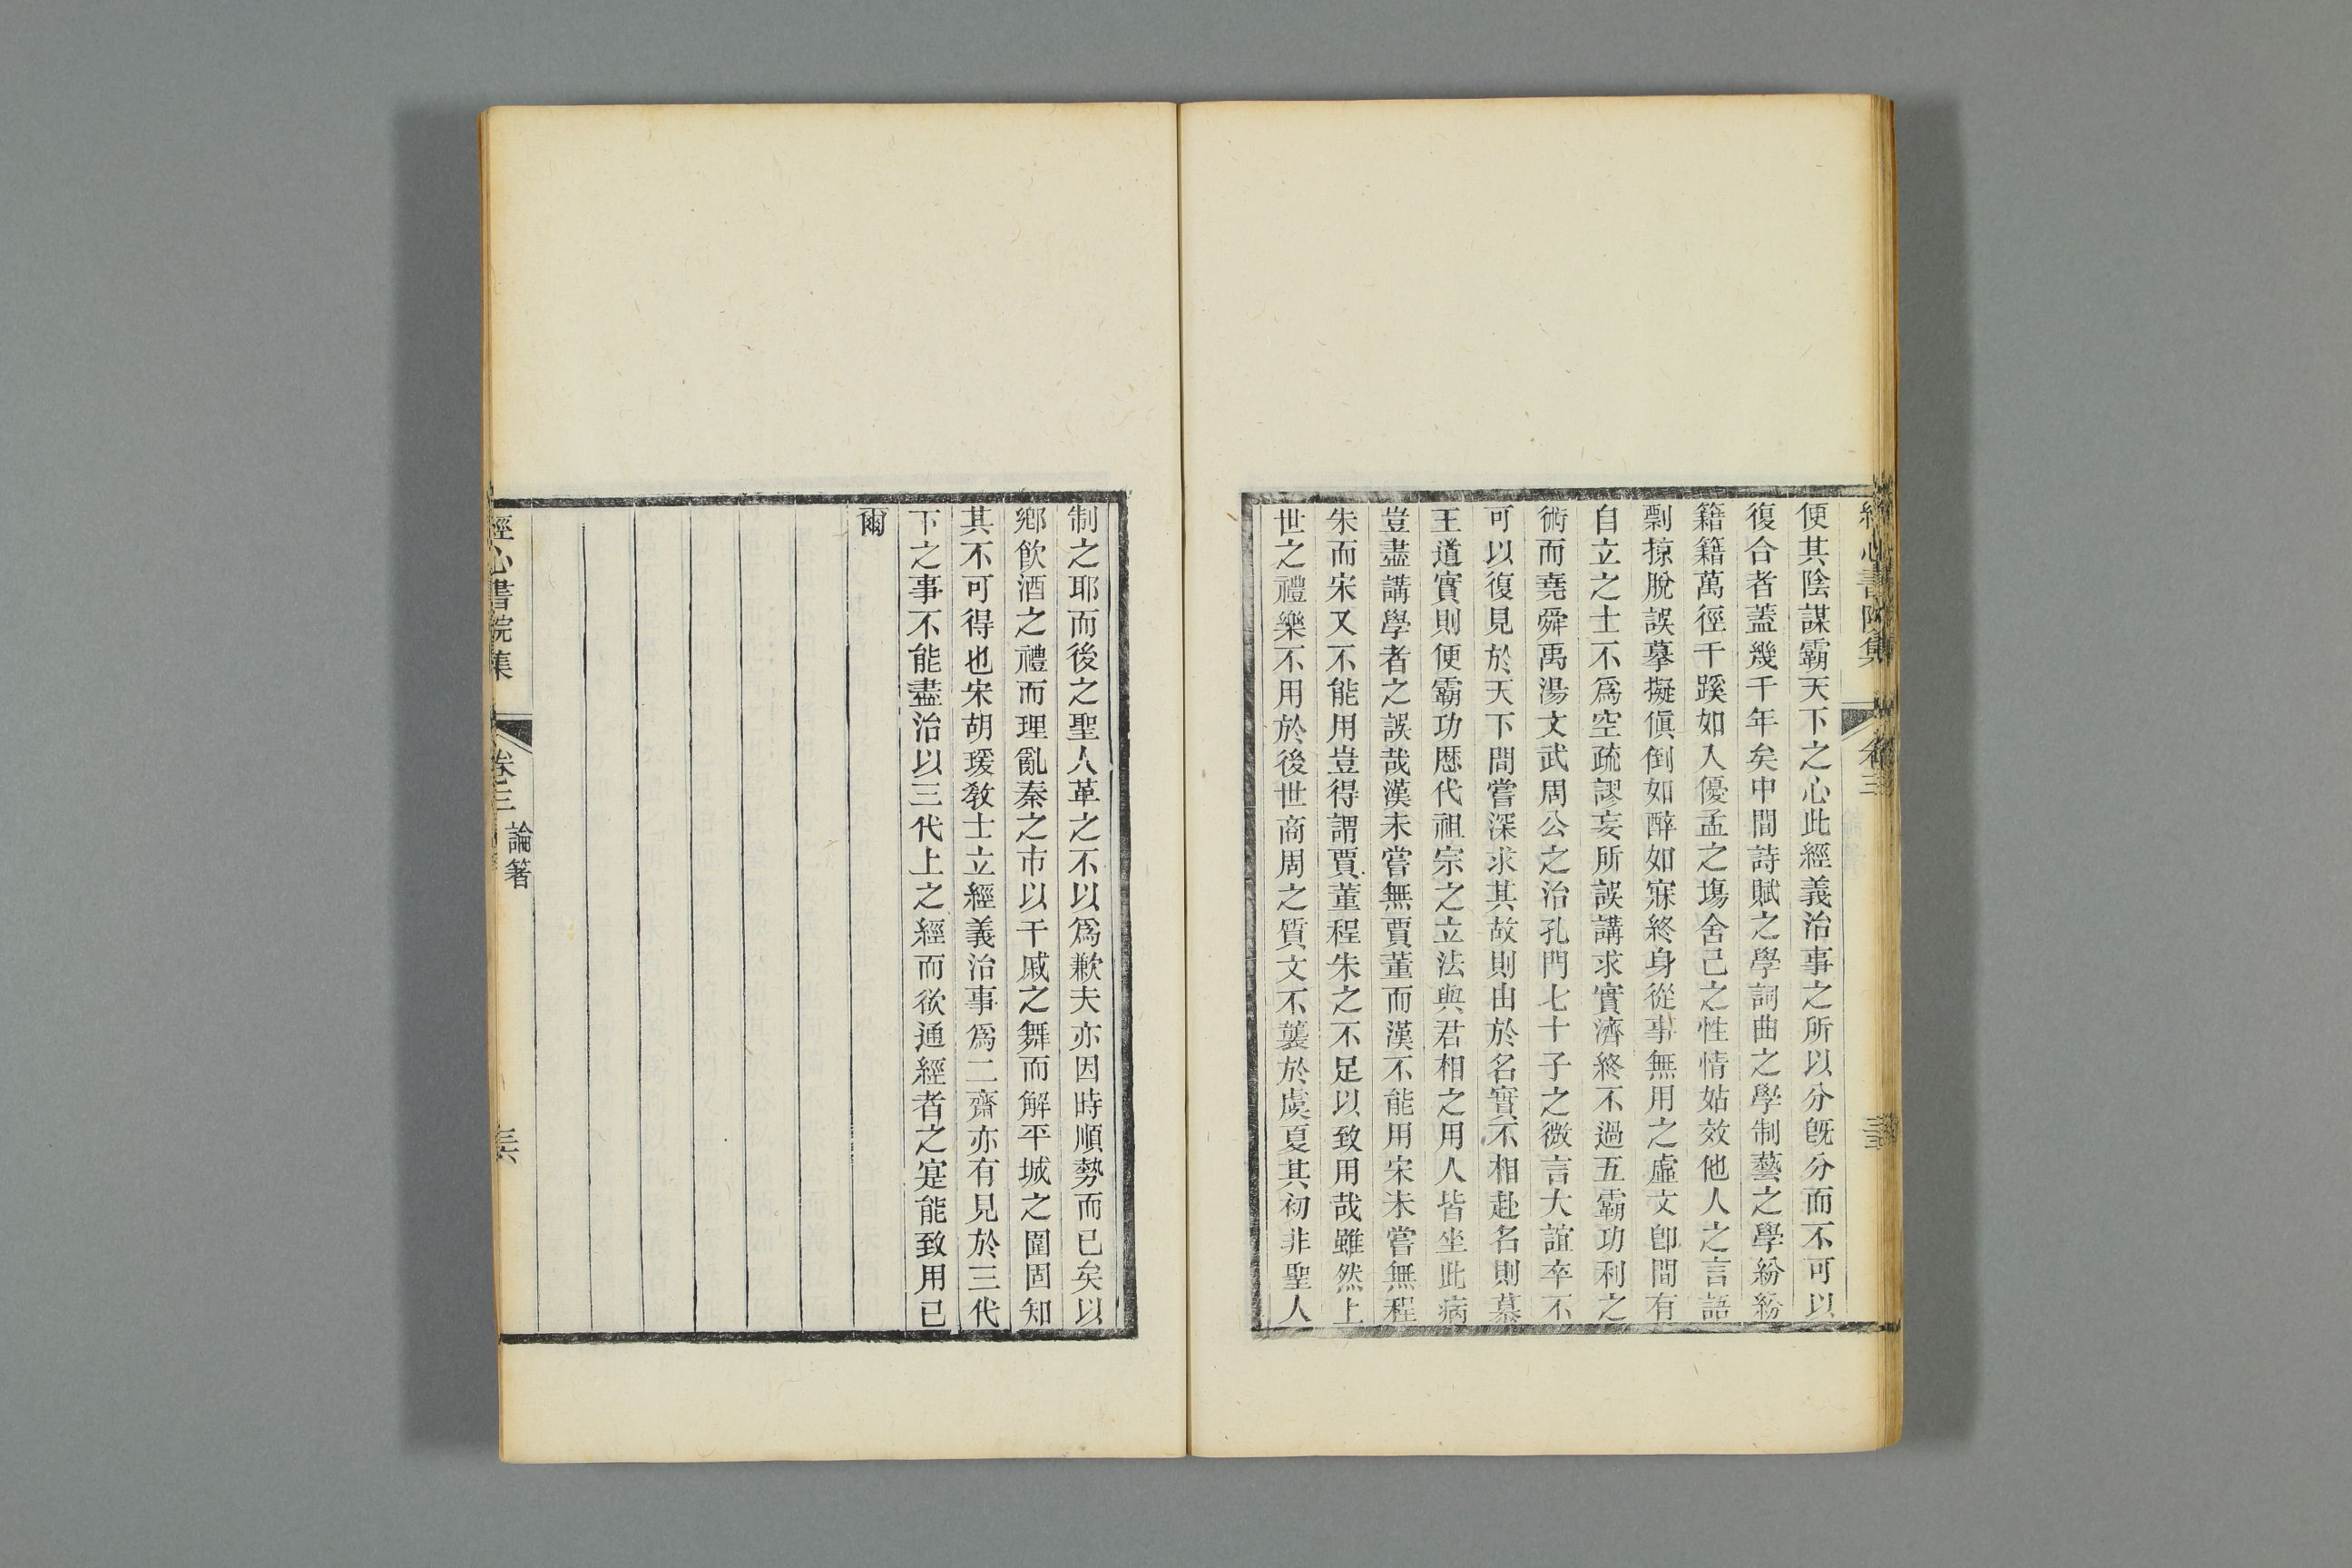 便其陰謀霸天下之心此經義治事之所以分旣分而不可以
復合者蓋幾千年矣中間詩賦之學詞曲之學制藝之學紛紛
籍籍萬徑千蹊如入優孟之塲舍己之性情姑效他人之言語
剽掠脫誤摹擬傎倒如醉如寐終身從事無用之虛文卽間有
自立之士不爲空疏謬妄所誤講求實濟終不過五霸功利之
術而堯舜禹湯文武周公之治孔門七十子之微言大誼卒不
可以復見於天下間嘗深求其故則由於名實不相赴名則慕
王道實則便霸功歷代祖宗之立法與君相之用人皆坐此病
豈盡講學者之誤哉漢未嘗無賈董而漢不能用宋未嘗無程
朱而宋又不能用豈得謂賈董程朱之不足以致用哉雖然上
世之禮樂不用於後世商周之質文不襲於虞夏其初非聖人
制之耶而後之聖人革之不以爲歉夫亦因時順勢而已矣以
鄕飮酒之禮而理亂秦之市以干戚之舞而解平城之圍固知
其不可得也宋胡瑗敎士立經義治事爲二齋亦有見於三代
下之事不能盡治以三代上之經而欲通經者之寔能致用已
爾
經心書院集
卷三
論箸